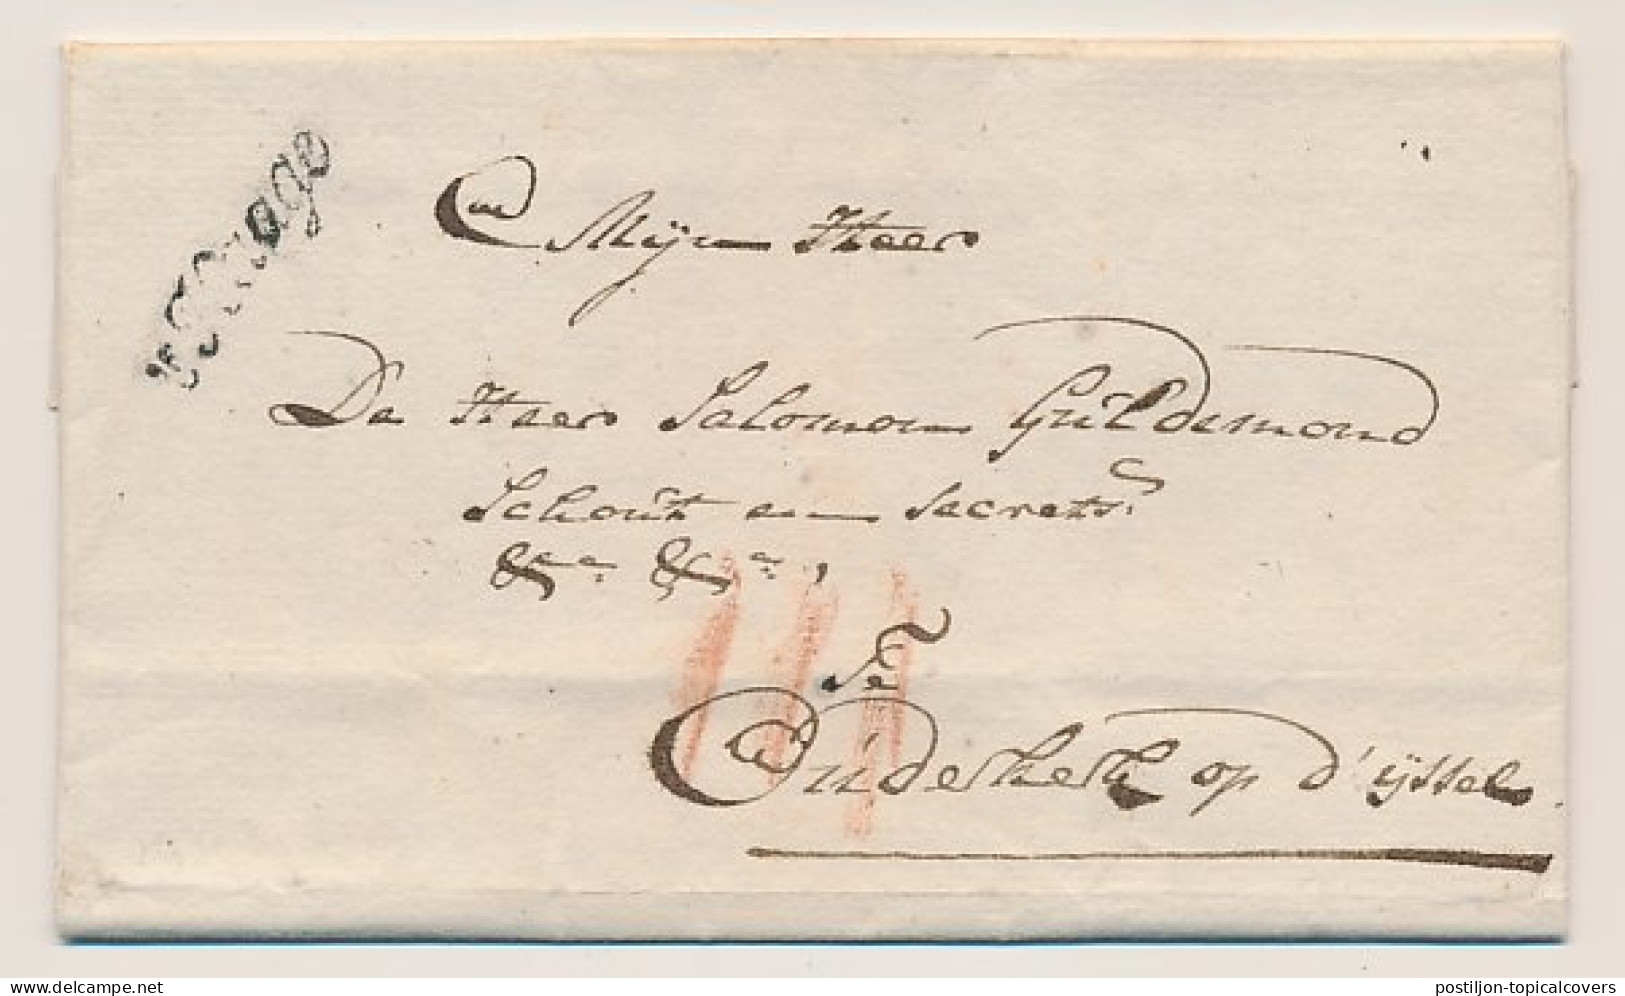 's Hage
Mijn Heer
De Heer Salomon Guldemond
Schout en Secrets:
&ca &ca,
Te
Ouderkerk op d'ijssel.
delcampe.net
postiljon-topicalcovers